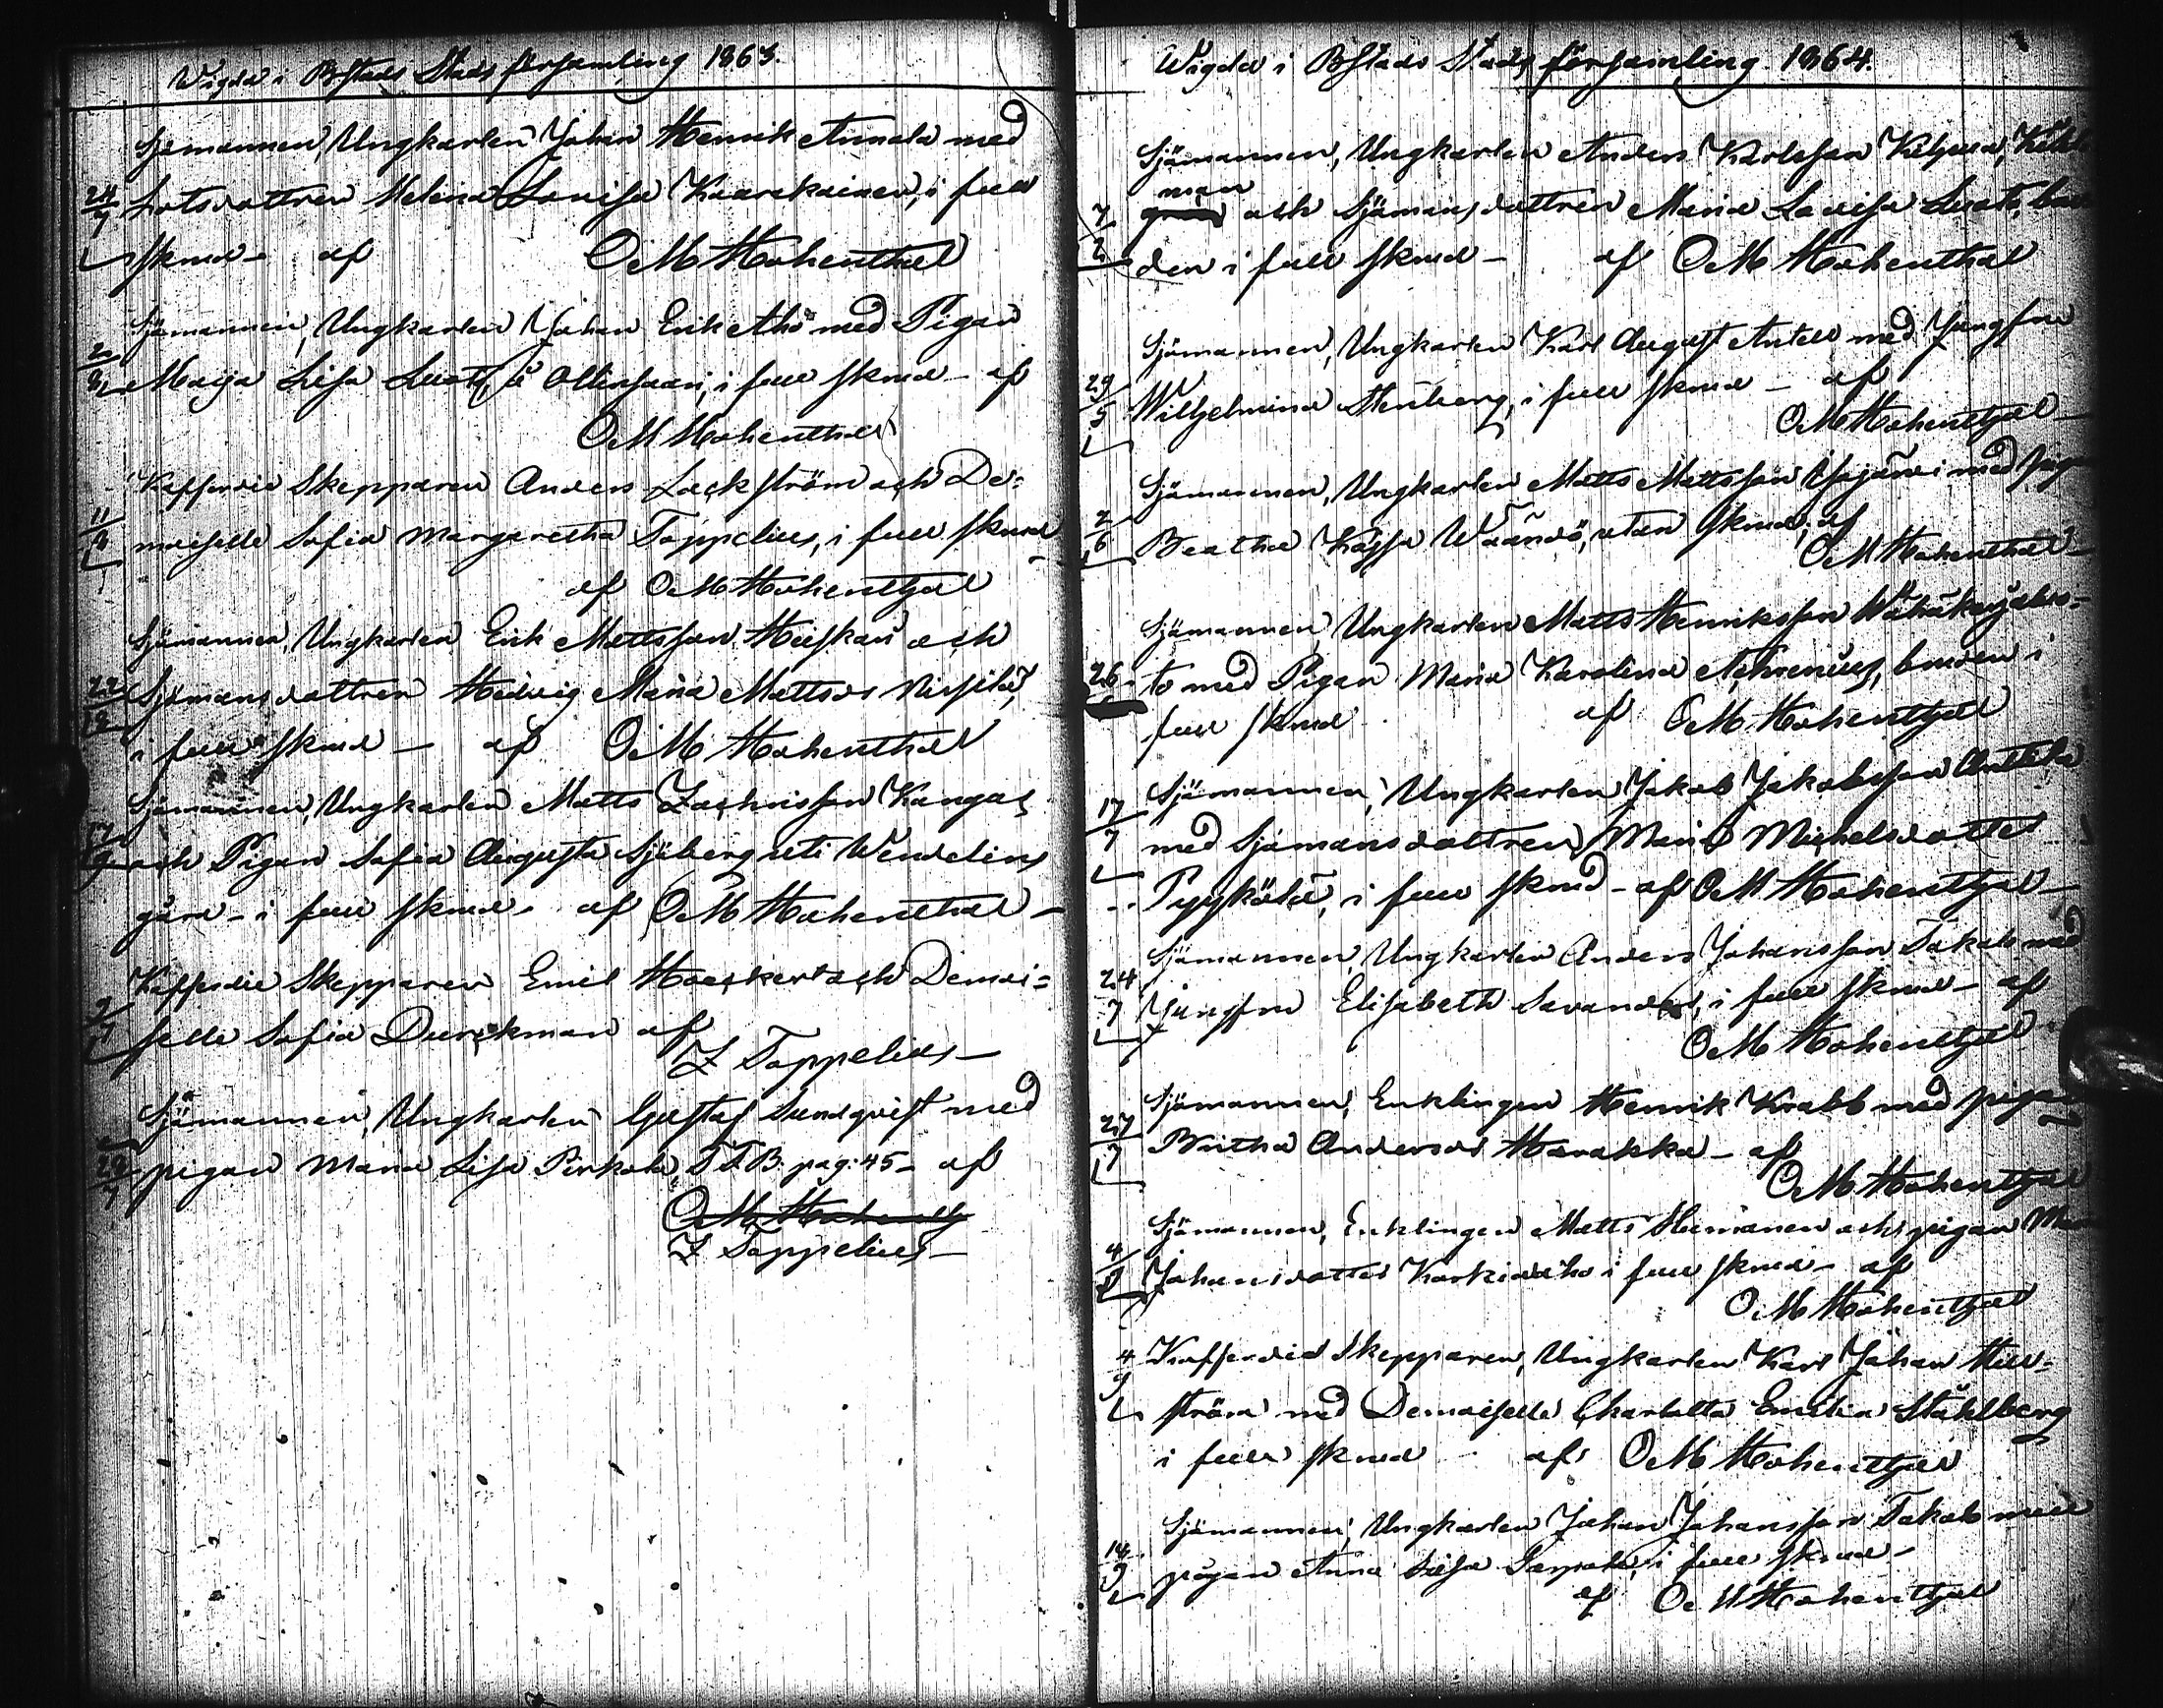 Wigda i Bstads Stads församling 1863.
Sjömannen, Ungkarlen Johan Henrik Annala med
24/7 Lotsdottren Helena Lovisa Kaarekainen, i full
skrud – af O M Hohenthal
Sjömannen, Ungkarlen Johan Erik Aho med Pigan
2/8 Maija Lisa Luoto å Ollinsaari, i full skrud – af
O M Hohenthal
Kofferdie Skepparen Anders Lackström och De-
11/8 moiselle Sofia Margaretha Toppelius, i full skrud –
af O M Hohenthal
Sjömannen, Ungkarlen Erik Mattsson Heiskari och
22/12 Sjömansdottren Hedvig Maria Mattsdr Nissilä,
i full skrud – af O M Hohenthal
Sjömannen, Ungkarlen Matts Zachrisson Kangas
och Pigan Sofia Augusta Sjöberg uti Wendelins
gård – i full skrud – af O M Hohenthal –
Kofferdie Skepparen Emil Hoeckert och Demoi-
selle Sofia Durchman af
Z Toppelius –
Sjömannen, Ungkarlen Gustaf Sundqvist med
pigan Maria Lisa Pirkola, T.F.B. pag: 45 – af
O M Hohenth
Z Toppelius –
Wigda i Bstads Stads församling 1864.
Sjömannen, Ungkarlen Anders Karlsson Kilpua,
man
7/2 och Sjömansdottren Maria Lovisa Luoto,
den i full skrud – af O M Hohenthal
Sjömannen, Ungkarlen Karl August Antell med Jungfru
29/5 Wilhelmina Stenberg, i full skrud – af
O M Hohenthal –
Sjömannen, Ungkarlen Matts Mattsson Isojärvi med
2/6 Beatha Kajsa Wäänäö, utan skrud, af
O M Hohenthal –
Sjömannen, Ungkarlen Matts Henriksson Wähäkangas-
26 to med Pigan Maria Karolina Achrenius, bruden i
full skrud af O M Hohenthal
Sjömannen, Ungkarlen Jakob Jakobsson Anttila
17/7 med Sjömansdottren Maria Michelsdotter
Pyykölä, i full skrud – af O M Hohenthal –
Sjömannen, Ungkarlen Anders Johansson Takalo med
24/7 Jungfru Elisabeth Savander, i full skrud – af
O M Hohenthal
Sjömannen, Enklingen Henrik Krabb med pigan
27/7 Britha Andersdr Harakka – af
O M Hohenthal
Sjömannen, Enklingen Matts Humanen och pigan
Johansdotter Karkiaaho i full skrud – af
O M Hohenthal
4/9 Kofferdie Skepparen, Ungkarlen Karl Johan Hell-
ström med Demoiselle Charlotta Emilia Ståhlberg
i full skrud – af O M Hohenthal
Sjömannen, Ungkarlen Johan Johansson Takalo med
14/9 pigan Anna Lisa Sarpola, i full skrud –
af O M Hohenthal